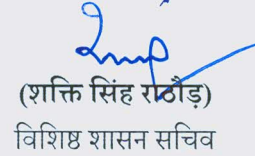 (शक्ति सिंह राठौड़)
विशिष्ठ शासन सचिव